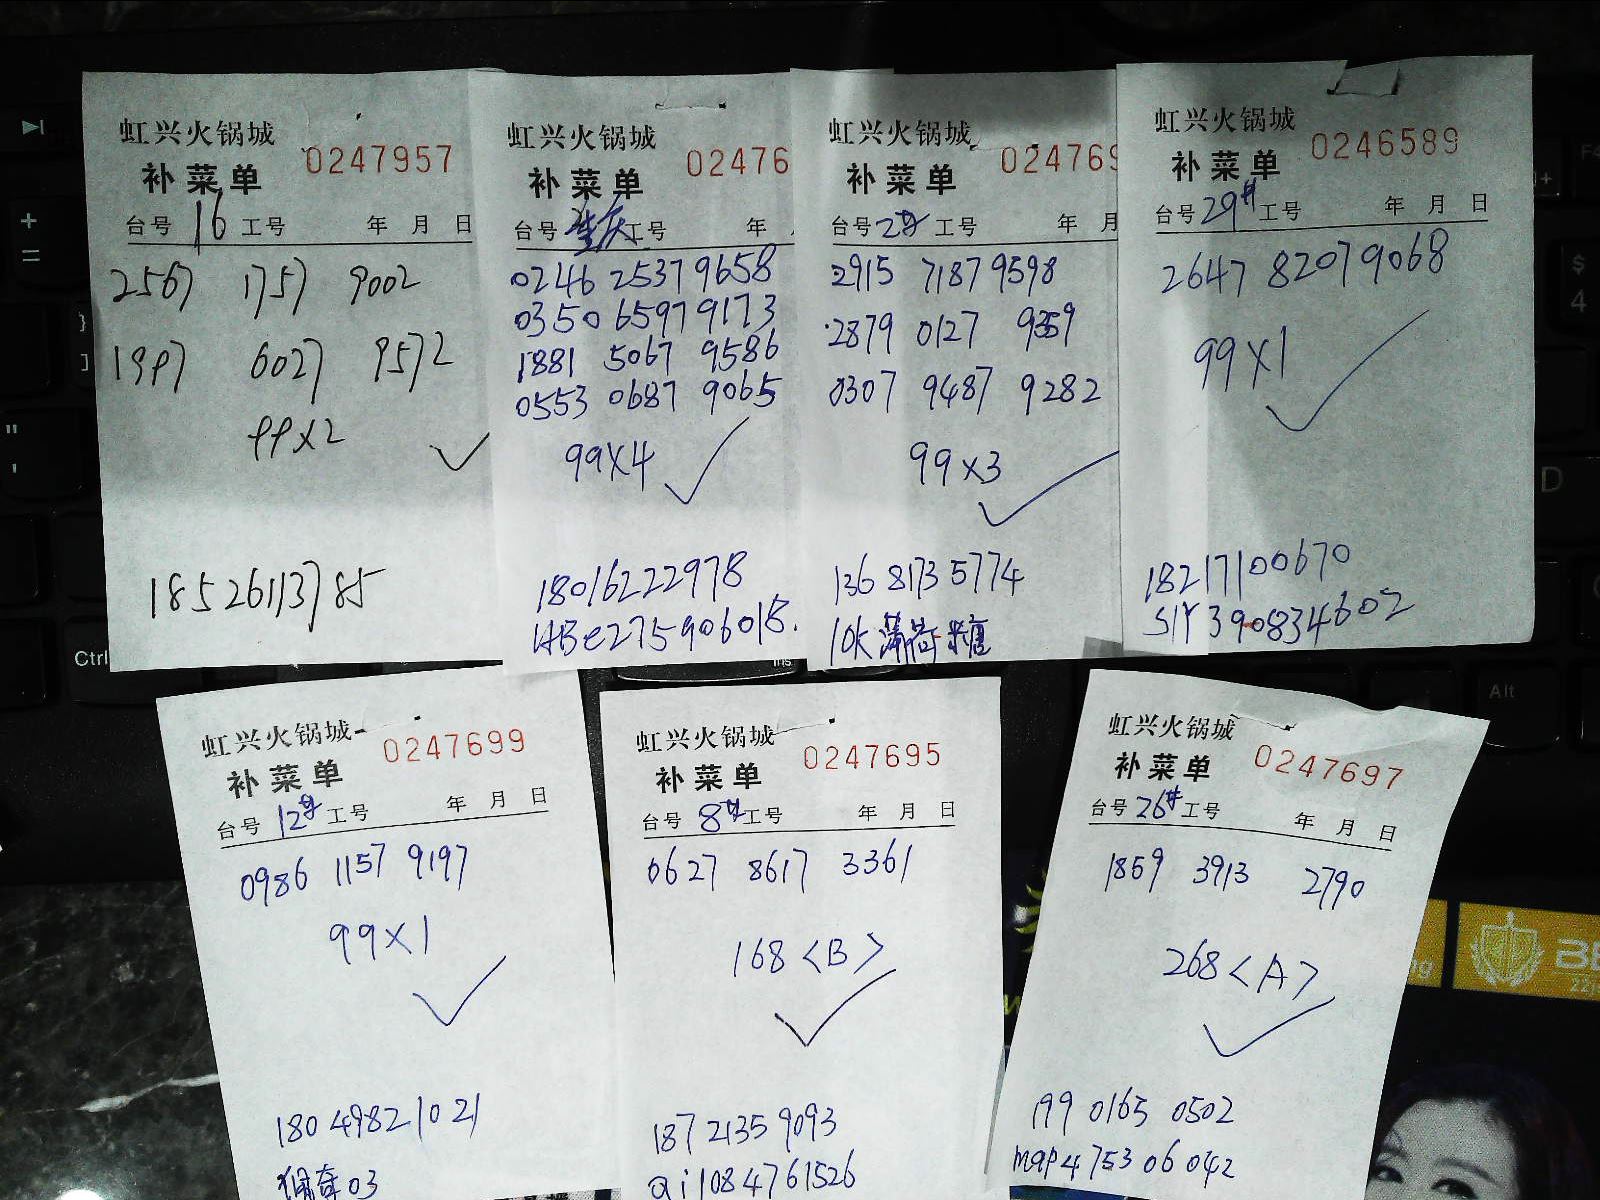 虹兴火锅城
0247957
补菜单
台号 16 工号 年 月 日
2567 1757 9002
1997 6027 9572
99×2
18526113785
虹兴火锅城
02476
补菜单
台号 重庆 工号 年
0246 2537 9658
0350 6597 9173
1881 5067 9586
0553 0687 9065
99×4
18016222978
HBe275906018.
虹兴火锅城
024769
补菜单
台号 2# 工号 年 月
2915 7187 9598
2879 0127 9359
0307 9487 9282
99×3
136 8173 5774
10K 薄荷糖
虹兴火锅城
0246589
补菜单
台号 29# 工号 年 月 日
2647 8207 9068
99×1
18217100670
SIY3908834602
虹兴火锅城
0247699
补菜单
台号 12# 工号 年 月 日
0986 1157 9197
99×1
180 4982 1021
佩奇03
虹兴火锅城
0247695
补菜单
台号 8# 工号 年 月 日
0627 8617 3361
168<B>
187 2135 9093
qi1084761526
虹兴火锅城
0247697
补菜单
台号 26# 工号 年 月 日
1859 3913 2790
268<A>
199 0165 0502
map475306042
Ctrl
Ins
Alt
D
$
4